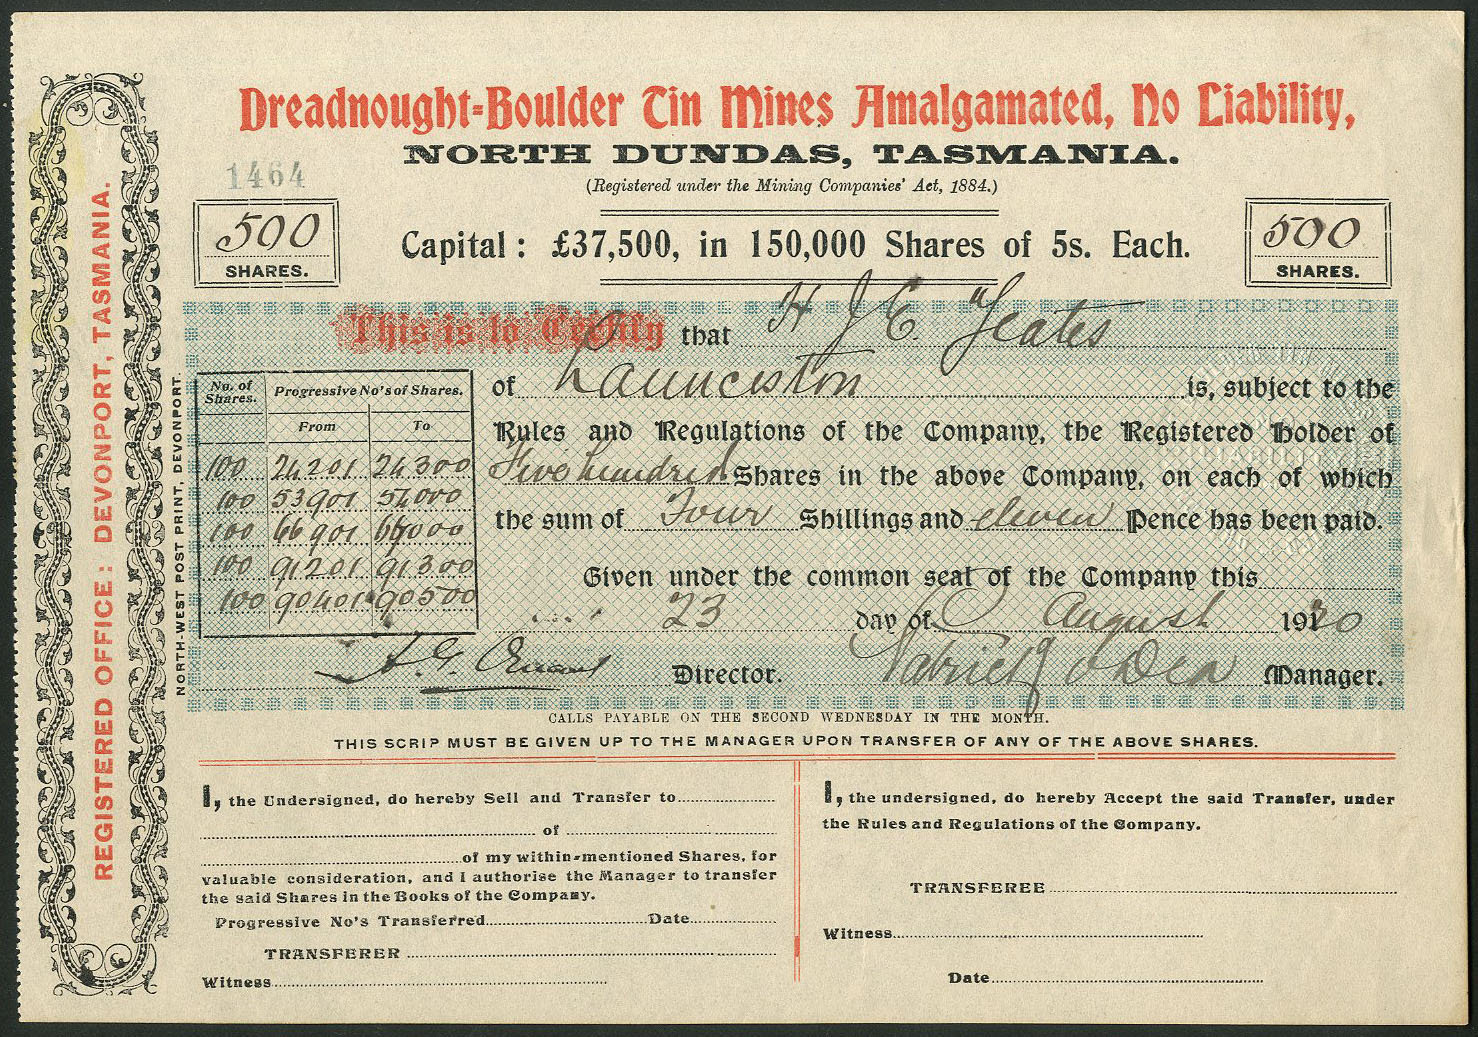 Dreadnought-Boulder Tin Mines Amalgamated, No Liability,
NORTH DUNDAS, TASMANIA.
(Registered under the Mining Companies' Act, 1884.)
1464
500
SHARES.
Capital: £37,500, in 150,000 Shares of 5s. Each.
500
SHARES.
REGISTERED OFFICE: DEVONPORT, TASMANIA.
NORTH-WEST POST PRINT, DEVONPORT.
This is to Certify that H J C Yeates
of Launceston is, subject to the
Rules and Regulations of the Company, the Registered Holder of
Five hundred Shares in the above Company, on each of which
the sum of Four Shillings and eleven Pence has been paid.
Given under the common seal of the Company this
23 day of August 1920
No. of Shares. Progressive No's of Shares.
From To
100 24201 24300
100 53901 54000
100 66901 67000
100 91201 91300
100 90401 90500
Director. Gabriel J O'Dea Manager.
CALLS PAYABLE ON THE SECOND WEDNESDAY IN THE MONTH.
THIS SCRIP MUST BE GIVEN UP TO THE MANAGER UPON TRANSFER OF ANY OF THE ABOVE SHARES.
I, the Undersigned, do hereby Sell and Transfer to
of
of my within-mentioned Shares, for
valuable consideration, and I authorise the Manager to transfer
the said Shares in the Books of the Company.
Progressive No's Transferred Date
TRANSFERER
Witness
I, the undersigned, do hereby Accept the said Transfer, under
the Rules and Regulations of the Company.
TRANSFEREE
Witness
Date